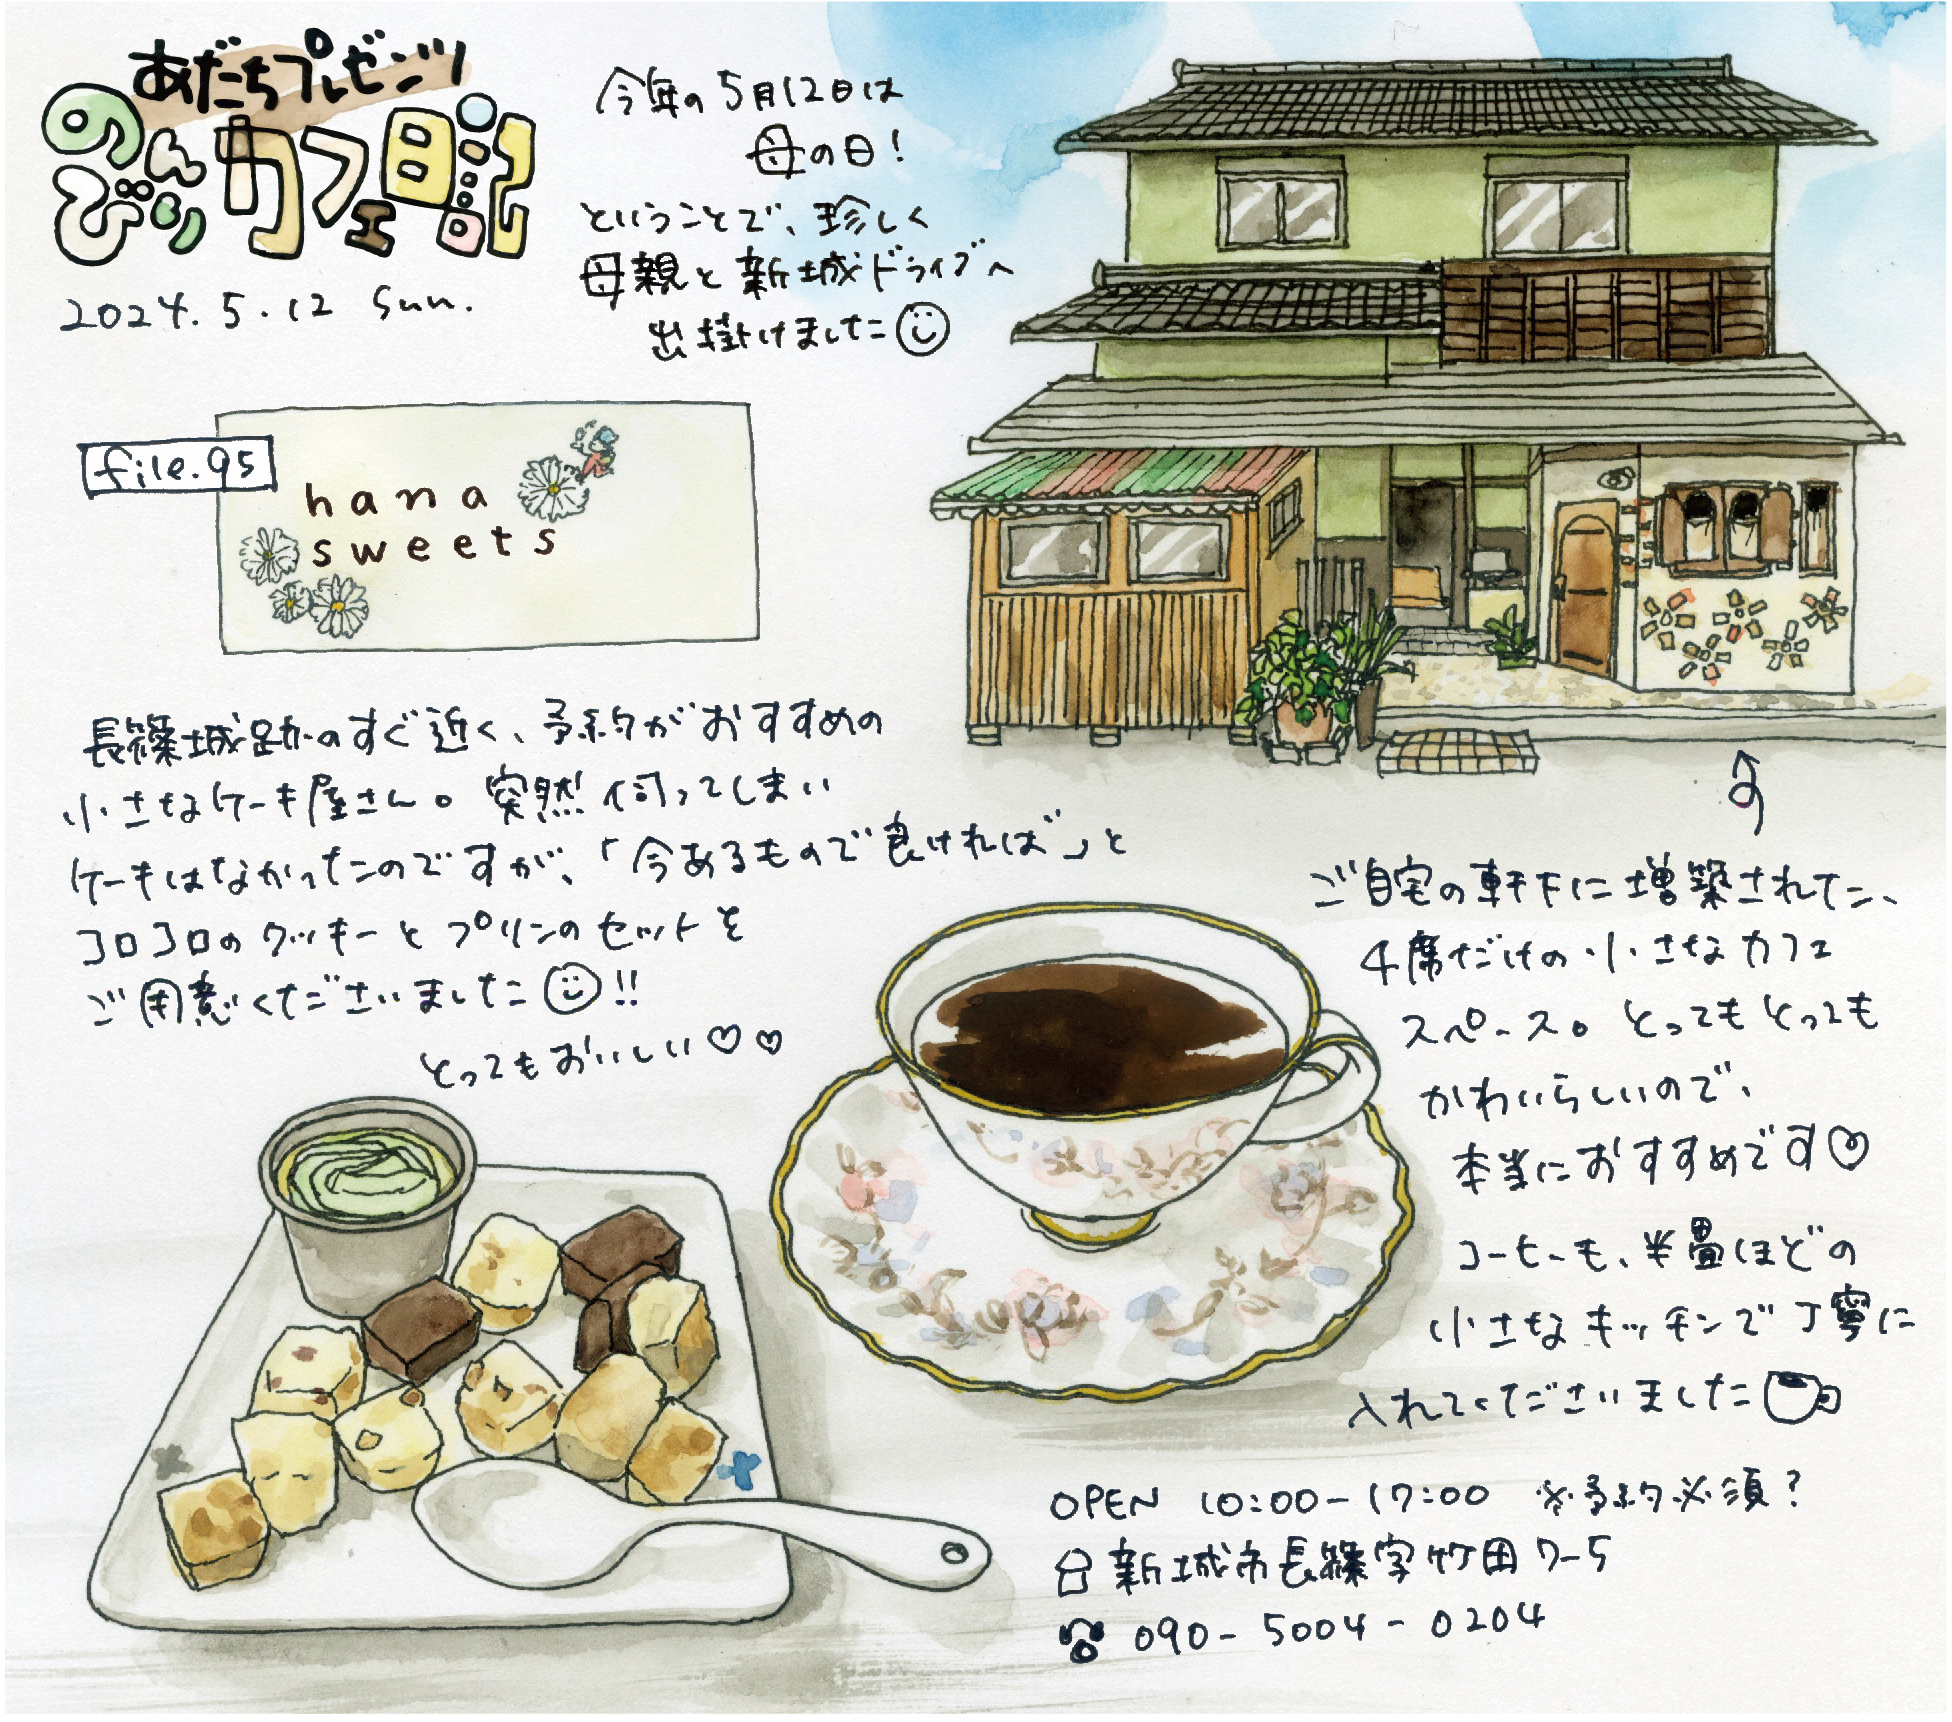 あだちプレゼンツ
のんびりカフェ日記
2024.5.12 Sun.
今年の5月12日は
母の日!
ということで、珍しく
母親と新城ドライブへ
出掛けました
file.95
hana
sweets
長篠城跡のすぐ近く、予約がおすすめの
小さなケーキ屋さん。突然伺ってしまい
ケーキはなかったのですが、「今あるもので良ければ」と
コロコロのクッキーとプリンのセットを
ご用意くださいました!!
とってもおいしい♡♡
ご自宅の軒下に増築された、
4席だけの小さなカフェ
スペース。とってもとっても
かわいらしいので、
本当におすすめです♡
コーヒーも、半畳ほどの
小さなキッチンで丁寧に
入れてくださいました
OPEN 10:00-17:00 ※予約必須?
新城市長篠字竹田7-5
☎ 090-5004-0204